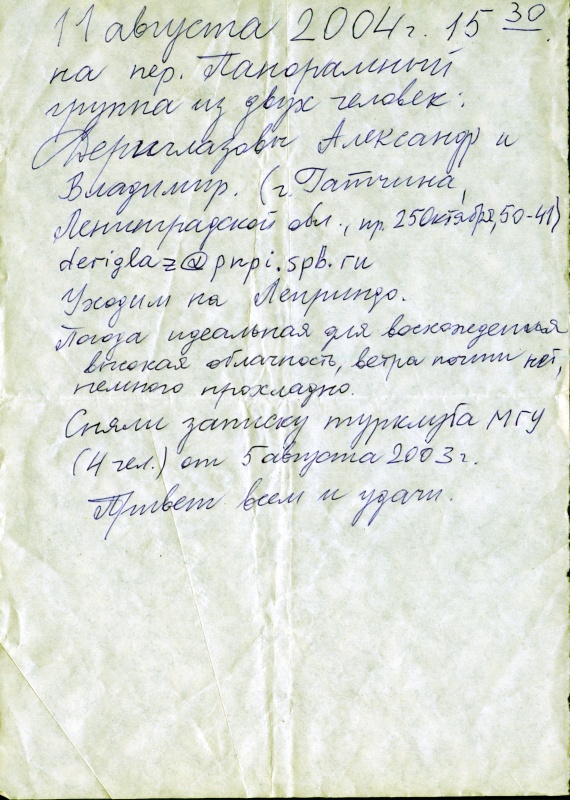 11 августа 2004г. 15 30.
на пер. Панорамный
группа из двух человек:
Дериглазовы Александр и
Владимир. (г. Гатчина,
Ленинградской обл., пр. 25 Октября, 50-41)
deriglaz@pnpi.spb.ru
Уходим на Леприндо.
Погода идеальная для восхождения
высокая облачность, ветра почти нет,
немного прохладно.
Сняли записку турклуба МГУ
(4 чел.) от 5 августа 2003г.
Привет всем и удачи.